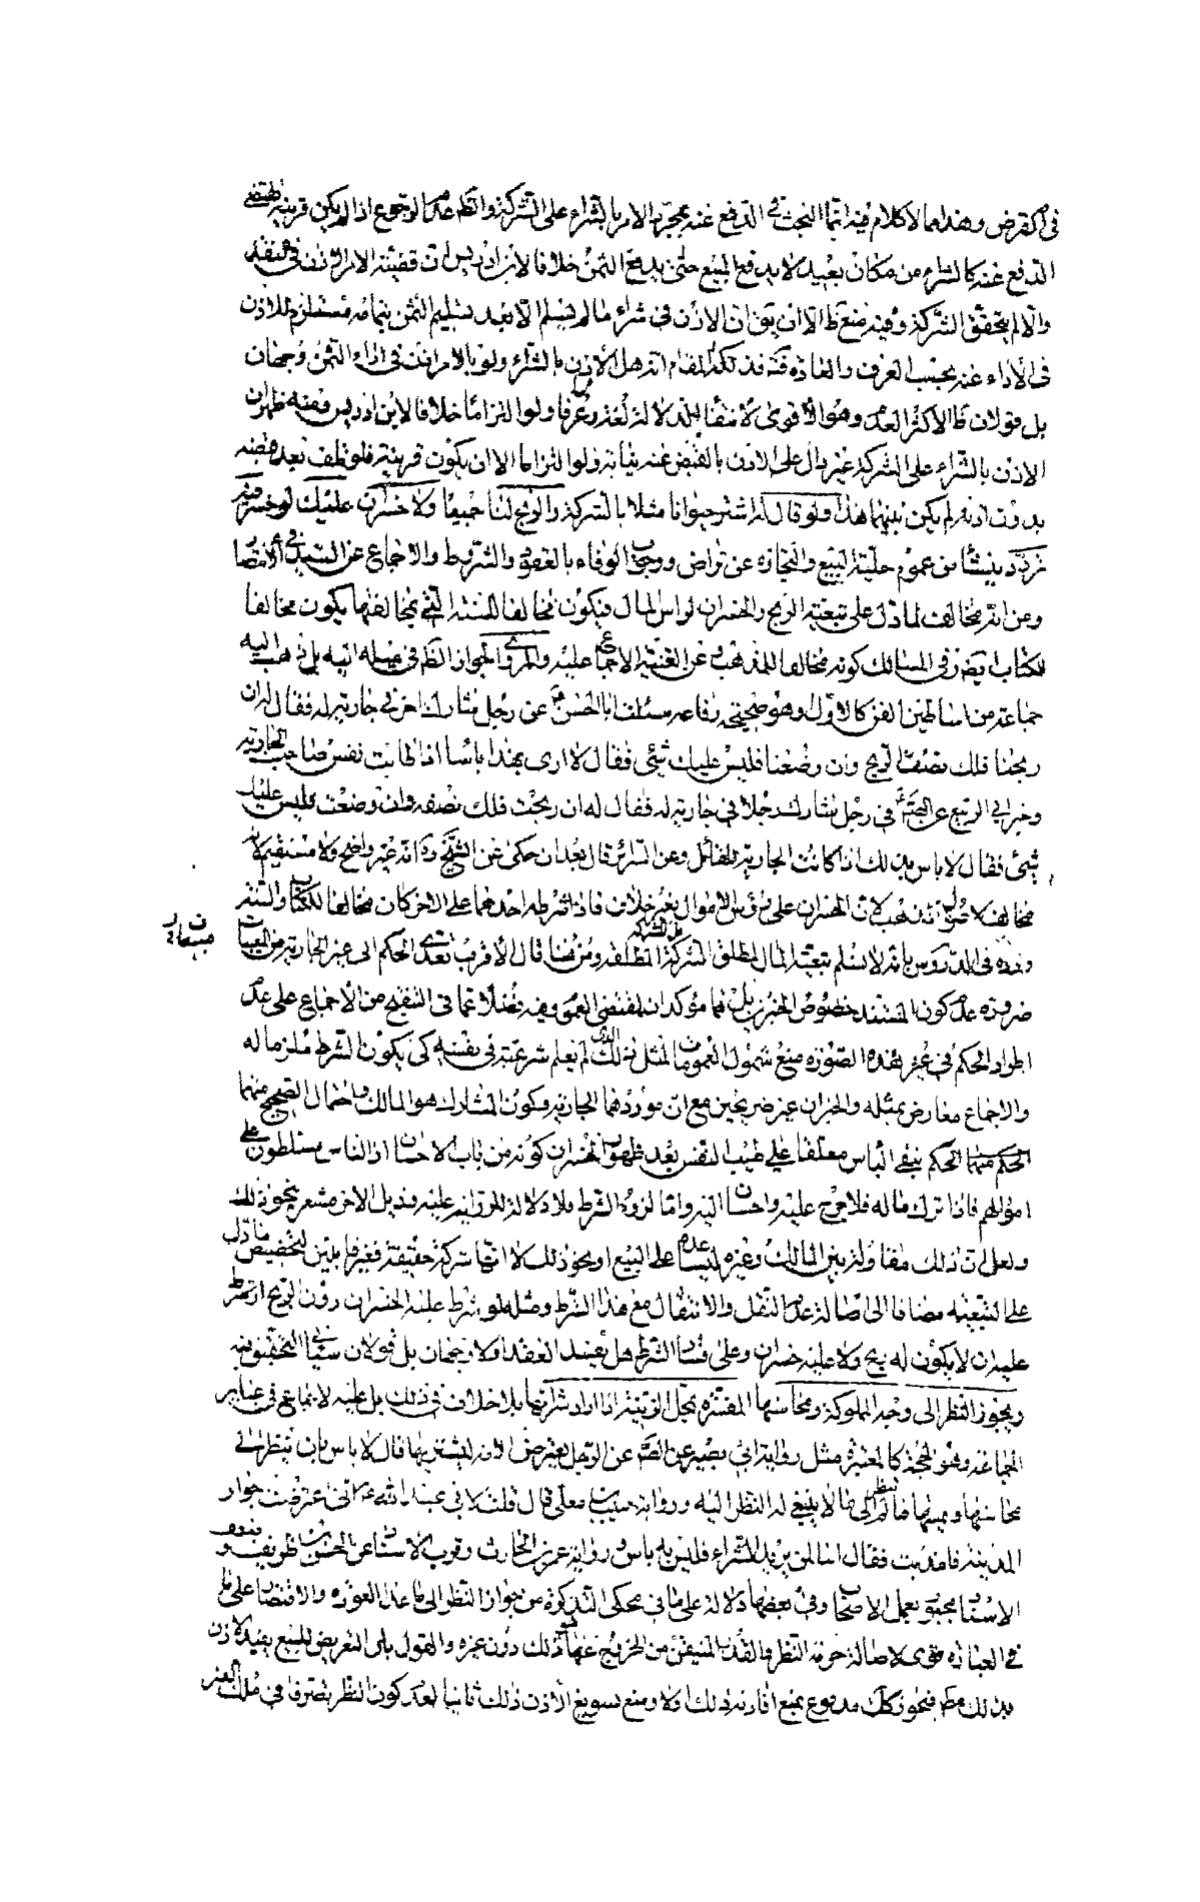 في القرض وهذا مما لا كلام فيه انما البحث في الدفع عنه بمجرد الامر بالشراء على الشركة والظ عدم الرجوع اذا لم يكن قرينة تقتضي
الدفع عنه كالشراء من مكان بعيد لا يدفع المبيع حتى يدفع الثمن خلافا لابن ادريس لان قضية الامر اذن في النقد
والا لم يتحقق الشركة وفيه منع ظ الا ان يق ان الاذن في شراء ما لم يسلم الا بعد تسليم الثمن بتمامه مستلزم للاذن
في الاداء عنه بحسب العرف والعادة فذلكة المقام انه هل الاذن بالشراء ولو بالامر اذن في اداء الثمن وجهان
بل قولان ظ الاكثر العدم وهو الاقوى لانتفاء الدلالة لغة وعرفا ولو التزاما خلافا لابن ادريس ومنه ظهر ان
الاذن بالشراء على الشركة غير دال على الاذن بالقبض عنه نيابة ولو التزاما الا ان يكون قرينة فلو تلف بعد قبضه
بدون اذنه لم يكن بينهما هذا ولو قال له اشتر حيوانا مثلا بالشركة والربح لنا جميعا ولا خسران عليك لو خسر ففيه
تردد ينشأ من عموم حلية البيع والتجارة عن تراض ووجوب الوفاء بالعقود والشروط والاجماع عن السيد في الانتصار
ومن انه مخالف لما دل على تبعية الربح والخسران لراس المال فيكون مخالفا للسنة التي بمخالفتها يكون مخالفا
للكتاب في المسالك كونه مخالفا للمذهب وعن الغنية الاجماع عليه والمروي الجواز الظ في ميله اليه بل ذهب اليه
جماعة من اساطين الفن كالاول وهو صحيحة رفاعة سئلت ابا الحسن ع عن رجل شارك اخر في جارية له فقال له ان
ربحنا فلك نصف الربح وان وضعنا فليس عليك شئ فقال لا ارى بهذا باسا اذا طابت نفس صاحب الجارية
وخبر ابي الربيع عن الص ع في رجل شارك رجلا في جارية له فقال له ان ربحت فلك نصفه وان وضعت فليس عليك
شئ فقال لا باس بذلك اذا كانت الجارية للقائل وعن السرائر قال بعد ان حكى عن الشيخ ره انه غير واضح ولا مستقيم لانه
مخالف لاصول مذهب لان الخسران على رؤس الاموال بغير خلاف فاذا شرطه احدهما على الاخر كان مخالفا للكتاب والسنة
ورده في الدروس بانه لا نسلم تبعية المال لمطلق الشركة بل الشركة المطلقة ومن هنا قال الاقرب تعدي الحكم الى غير الجارية من المبيعات
ضرورة عدم كون المستند خصوص الخبرين بل هما مؤكدان لمقتضى العموم وفيه فضلا عما في التنقيح من الاجماع على عدم
اطراد الحكم في غير هذه الصورة منع شمول العمومات لمثل ذلك الذي لم نعلم شرعيته في نفسه كي يكون الشرط ملزما له
والاجماع معارض بمثله والخبران غير صريحين مع ان موردهما الجارية وكون المشارك هو المالك واحتمال الصحيح منهما
الحكم بنفي الباس معلقا على طيب النفس بعد ظهور الخسران كونه من باب الاحسان اذ الناس مسلطون على
اموالهم فاذا ترك ماله فلا حرج عليه واحسان اليه واما لزوم الشرط فلا دلالة للرواية عليه وذيل الاخر مشعر بنحو ذلك
ولعل ان ذلك مقاولة بين المالك وغيره ليساعده على البيع او نحو ذلك لا انها شركة حقيقة فغير قابلين لتخصيص ما دل
على التبعية مضافا الى اصالة عدم النقل والانتقال مع هذا الشرط ومثله لو شرط عليه الخسران دون الربح او شرط
عليه ان لا يكون له ربح ولا عليه خسران وعلى فساد الشرط هل يفسد العقد اولا وجهان بل قولان سياتي التحقيق فيه
ويجوز النظر الى وجه المملوكة ومحاسنها المفسرة بمحل الزينة اذا اراد شرائها بلا خلاف في ذلك بل عليه الاجماع في عباير
الجماعة وهو الحجة كالمعتبرة مثل رواية ابي بصير عن الص ع عن الرجل يعترض الامة ليشتريها قال لا باس بان ينظر الى
محاسنها ويمسها ما لم ينظر الى ما لا ينبغي له النظر اليه ورواية حبيب بن معلى قال قلت لابي عبد الله ع اني اعترضت جوار
المدينة فامذيت فقال اما لمن يريد الشراء فليس به باس ورواية عمران الحارث وقرب الاسناد عن الحسن بن ظريف و
الاسناد مجبور بعمل الاصحاب وفي بعضها دلالة على ما في محكى التذكرة من جواز النظر الى ما عدا العورة والاقتصار على ما
في العبارة قوى لاصالة حرمة النظر والقدر المتيقن من الخروج عنها هو ذلك دون غيره والقول بان التعريض للبيع يفيد الاذن
بذلك مط فيجوز كك مدفوع بمنع افادته ذلك اولا ومنع تسويغ الاذن ذلك ثانيا لعدم كون النظر تصرفا في ملك الغير